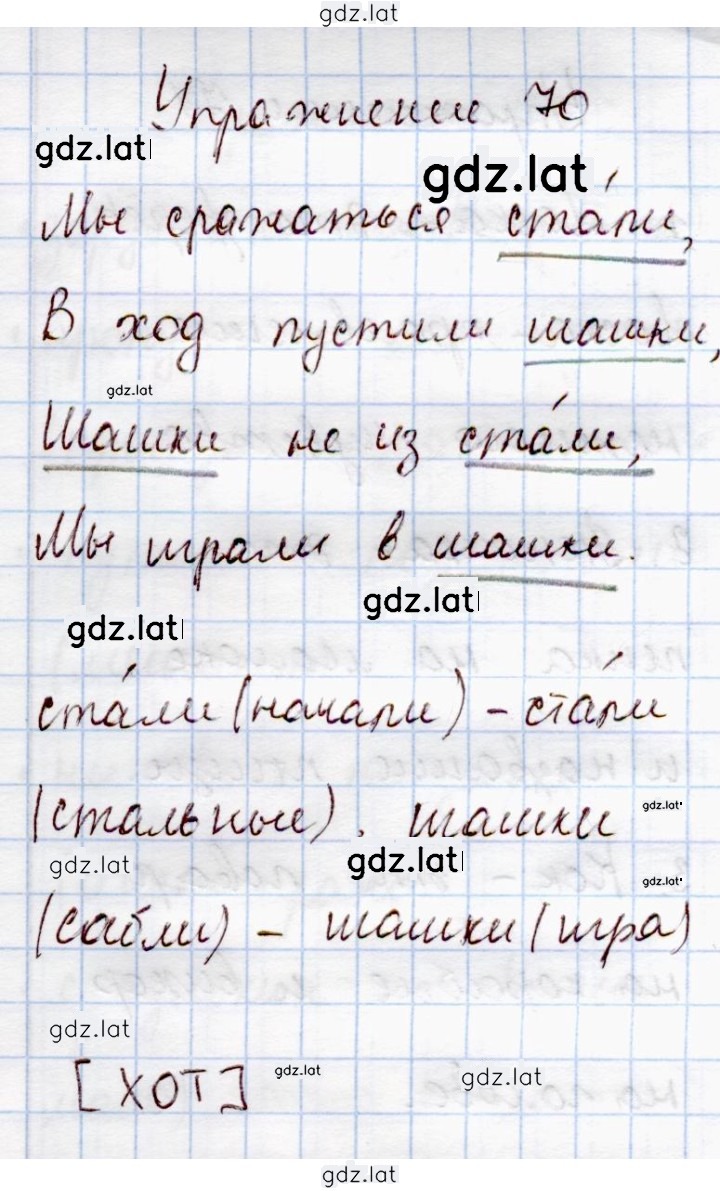 gdz.lat
Упражнение 70
gdz.lat
gdz.lat
Мы сражаться ста́ли,
В ход пустили шашки,
gdz.lat
Шашки не из ста́ли,
Мы играли в шашки.
gdz.lat
gdz.lat
ста́ли (начали) – ста́ли
(стальные). шашки
gdz.lat
gdz.lat
gdz.lat
gdz.lat
(сабли) – шашки (игра)
gdz.lat
[ХОТ]
gdz.lat
gdz.lat
gdz.lat